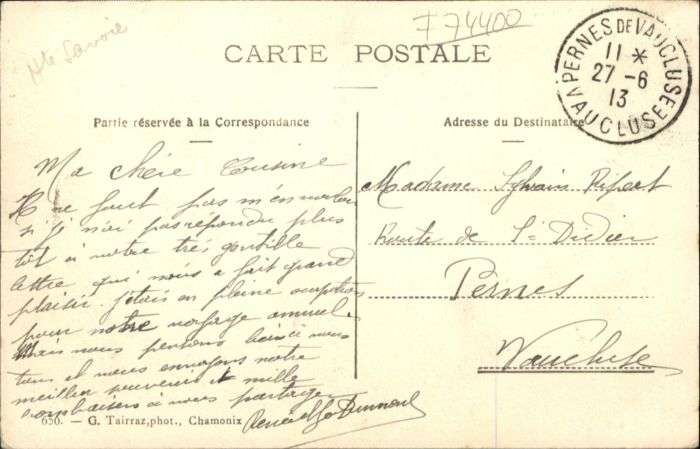 Hte Savoie
F 74400
CARTE POSTALE
PERNES DE VAUCLUSE
11 *
27 - 6
13
VAUCLUSE
Partie réservée à la Correspondance
Adresse du Destinataire
Ma chère Cousine
Il ne faut pas m'en vouloir
si je n'ai pas répondu plus
tôt à votre très gentille
lettre qui nous a fait grand
plaisir. j'étais en pleine occupations
pour notre voyage annuel.
Mais nous pensons bien à vous
tous et nous envoyons notre
meilleur souvenir et mille
à vous partager
Madame Sylvain Ripert
Route de St Didier
Pernes
Vaucluse
650. — G. Tairraz, phot., Chamonix